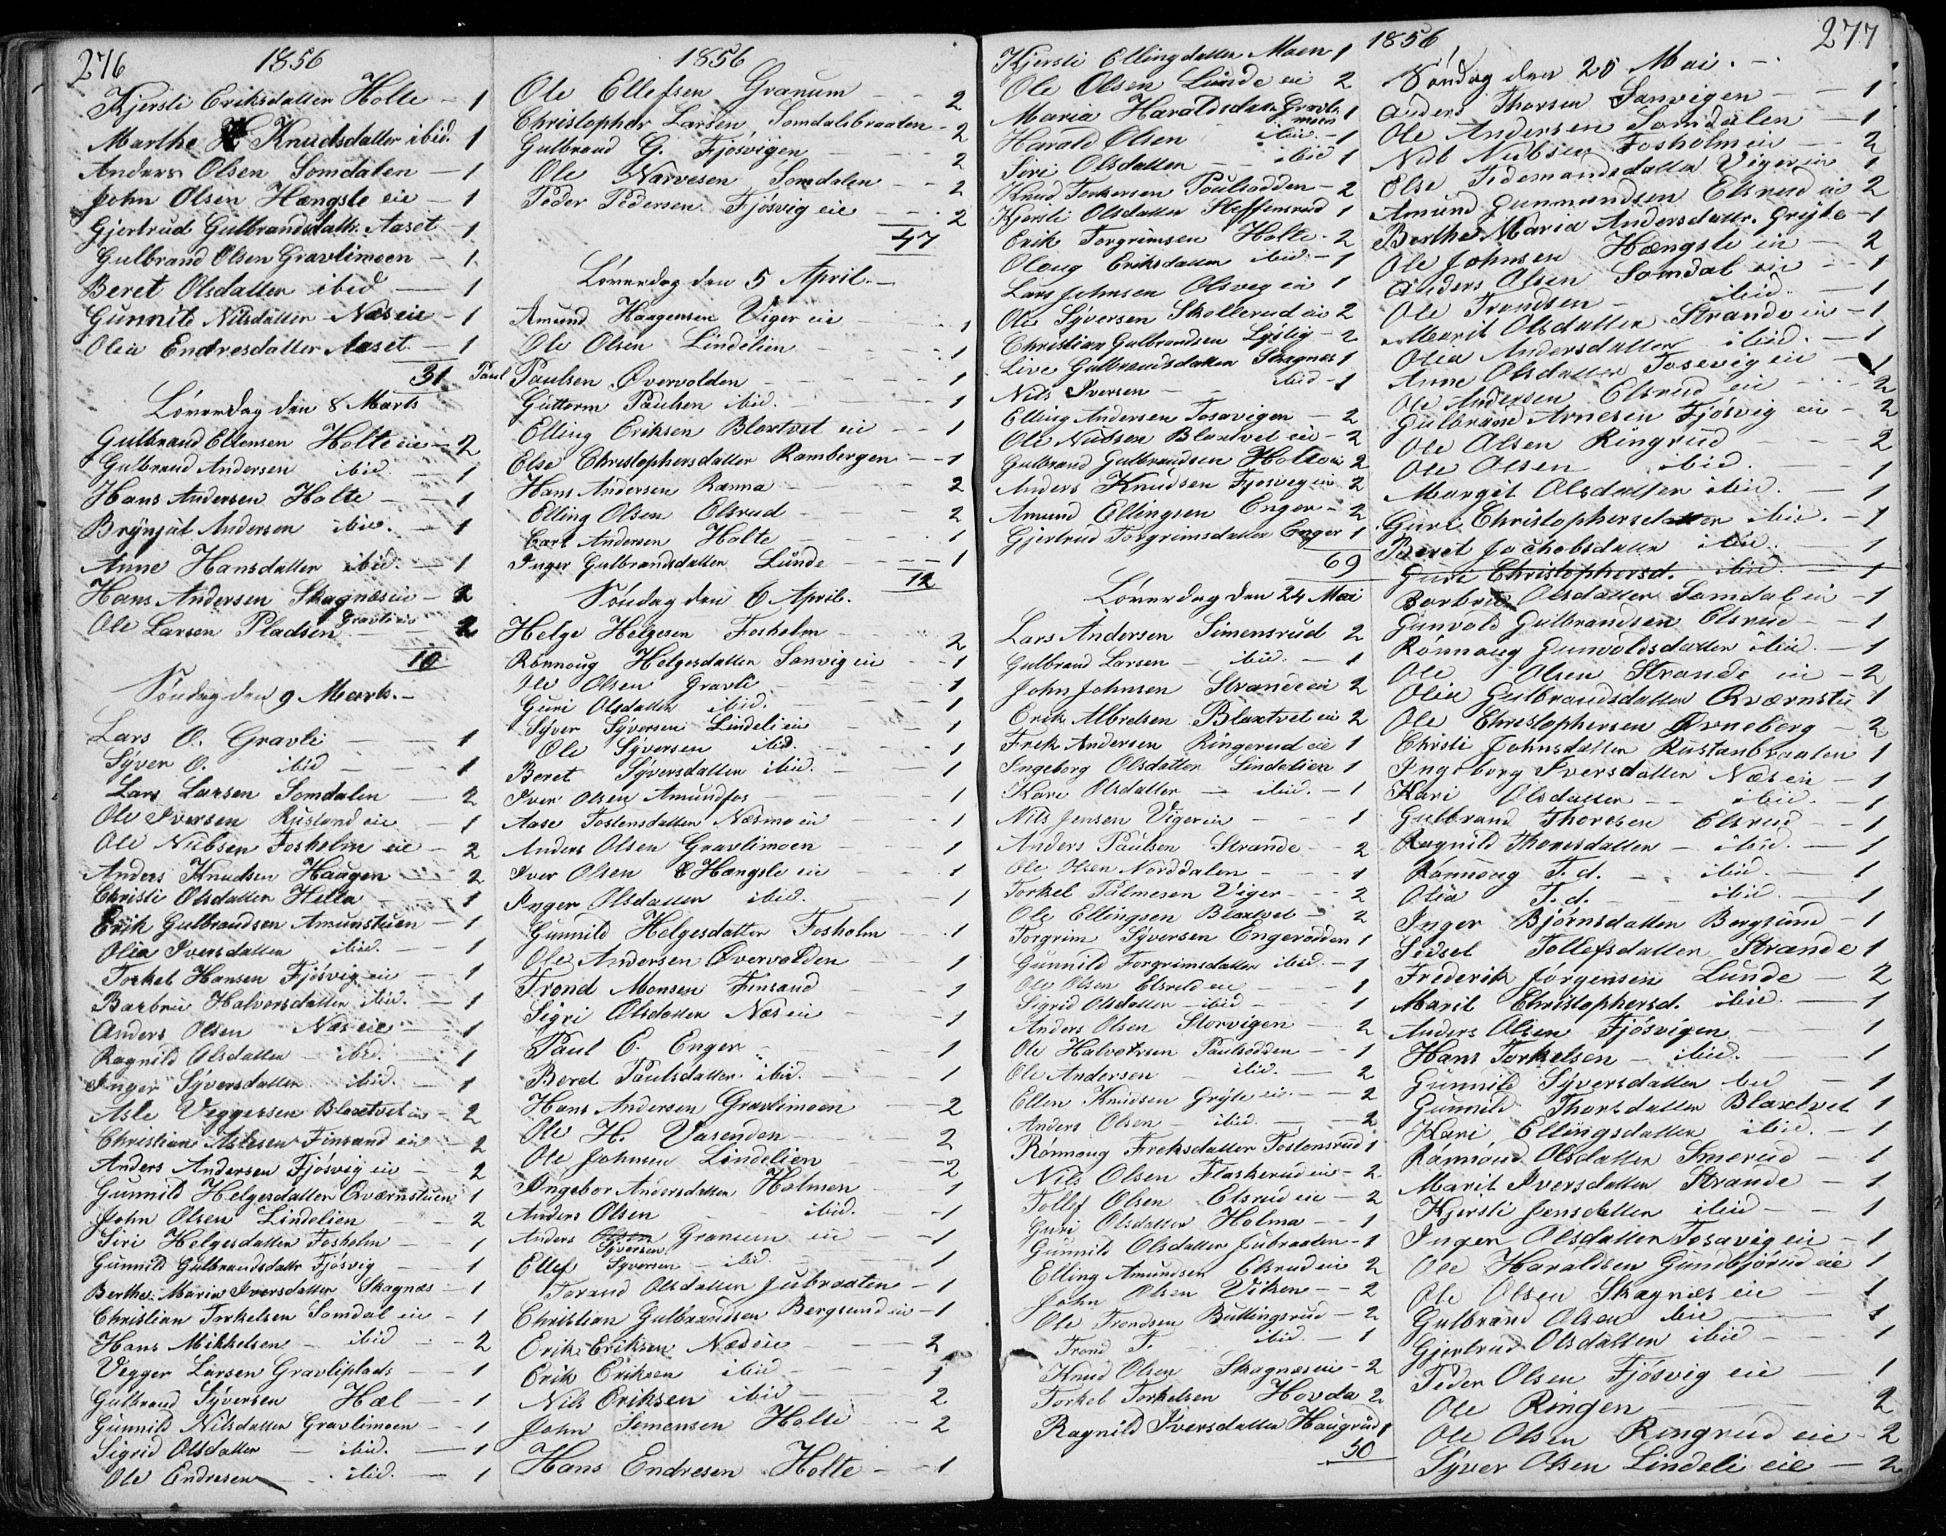 276
1856
Kjersti Eriksdatter Holte — 1
Marthe K Knudsdatter ibid. 1
Anders Olsen Somdalen — 1
John Olsen Hængsle eie — 1
Gjertrud Gulbrandsdattr. Aaset 1
Gulbrand Olsen Gravlimoen — 1
Beret Olsdatter ibid — 1
Gunnild Nilsdatter Næseie — 1
Olea Endresdatter Aaset — 1
31
Løverdag den 8 Marts
Gulbrand Ellensen Holte eie — 2
Gulbrand Andersen ibid. — 1
Hans Andersen Holte — 1
Brynjul Andersen ibid. — 1
Anne Hansdatter ibid. — 1
Hans Andersen Skagnæseie — 2
Ole Larsen Pladsen Gravli eie 2
10
Søndag den 9 Marts. —
Lars O. Gravli — 1
Syver O. ibid — 1
Lars Larsen Somdalen — 2
Ole Iversen Rustand eie — 1
Ole Nilsen Fosholm eie — 2
Anders Knudsen Haugen — 2
Christi Olsdatter Hella — 1
Erik Gulbrandsen Amunstuen — 1
Olea Iversdatter ibid. — 1
Torkel Hansen Fjøsvig eie — 1
Barbro Halvorsdatter ibid. — 1
Anders Olsen Næseie — 1
Ragnild Olsdatter ibid. — 1
Inger Syversdatter ibid. — 1
Asle Veggersen Blaxtvet ei — 2
Christian Aslesen Finsand eie — 2
Anders Andersen Fjøsvig eie — 2
Gunnild Helgesdatter Qværnstuen 1
John Olsen Lindelien — 2
Siri Helgesdatter Fosholm — 1
Gunnild Gulbrandsdattr Fjøsvig — 1
Berthe Maria Iversdatter Skagnæs — 1
Christian Torkelsen Somdal eie — 1
Hans Mikkelsen ibid — 2
Vegger Larsen Gravliplads — 1
Gulbrand Syversen Hæl — 1
Gunnild Nilsdatter Gravlimoen — 1
Sigrid Olsdatter — ibid. — 1
Ole Endresen — ibid. — 1
1856
Ole Ellefsen Granum — 2
Christopher Larsen Somdalsbraaten — 2
Gulbrand G. Fjøsvigen — 2
Ole Narvesen Somdalen — 2
Peder Pedersen Fjøsvig eie — 2
47
Løverdag den 5 April. —
Amund Haagensen Viger eie — 1
Ole Olsen Lindelien — 1
Paul Paulsen Øvervolden — 1
Guttorm Paulsen ibid. — 1
Elling Eriksen Blaxtvet eie — 1
Else Christophersdatter Rambergen — 1
Hans Andersen Ranna — 2
Elling Olsen Elsrud — 2
Carl Andersen Holte — 1
Inger Gulbrandsdatter Lunde — 1
12
Søndag den 6 April.
Helge Helgesen Fosholm — 2
Rønnoug Helgesdatter Sanvig eie — 1
Ole Olsen Gravli — 1
Guri Olsdatter ibid. — 1
Syver Syversen Lindeli eie — 1
Ole Syversen ibid. — 1
Beret Syversdatter ibid. — 1
Iver Olsen Amundfos — 1
Aase Tostensdatter Næsmo ei — 1
Anders Olsen Gravlimoen — 1
Iver Olsen Hængsle eie — 1
Inger Olsdatter ibid. — 1
Gunnild Helgesdatter Fosholm — 1
Ole Andersen Øvervolden — 1
Trond Monsen Finsand — 1
Sigri Olsdatter Næseie — 1
Paul E. Enger — 1
Beret Paulsdatter ibid. — 1
Hans Andersen Gravlimoen — 2
Ole H. Vasenden — 2
Ole Johnsen Lindelien — 2
Ingebor Andersdatter Holmen 1
Anders Olsen ibid. — 1
Anders Syversen Granum eie — 1
Ellef Syversen — ibid. — 1
Torand Olsdatter Jubraaten — 1
Christian Gulbrandsen Bergsund eie — 1
Erik Eriksen Næseie — 2
Erik Eriksen ibid — 1
Nils Eriksen ibid — 2
John Simensen Holte — 2
Hans Endresen Holte — 1
277
1856
Kjersti Ellingdatter Moen 1
Ole Olsen Lunde eie 2
Maria Haraldsdatter Gravlimoen 1
Harald Olsen ibid. — 1
Siri Olsdatter — ibid 1
Knud Torkersen Poulsodden — 2
Kjersti Olsdatter Steffensrud 1
Erik Torgrimsen Holte — 2
Oloug Eriksdatter ibid. — 1
Lars Johnsen Olsveg ei 1
Ole Syversen Skollerud ei 2
Christian Gulbrandsen Lystig — 2
Live Gulbrandsdatter Skagnæs 1
Nils Iversen — ibid — 1
Elling Andersen Tosavigen — 2
Ole Nilsen Blaxtvet eie — 2
Gulbrand Gulbrandsen Holte ei 2
Anders Knudsen Fjøsvig ei 2
Amund Ellingsen Enger — 2
Gjertrud Torgrimsdatter Enger 1
69
Løverdag den 24 Mai
Lars Andersen Simensrud 2
Gulbrand Larsen — ibid. — 1
John Johnsen Strande ei 2
Erik Albretsen Blaxtvet ei 2
Frek Andersen Ringerud eie 1
Ingeborg Olsdatter Lindelien 1
Kari Olsdatter — ibid. — 1
Nils Jensen Viger ei — 1
Anders Paulsen Strande — 2
Ole Olsen Norddalen — 1
Torkel Palmesen Viger — 2
Ole Ellingsen Blaxtvet — 2
Torgrim Syversen Engerodden 1
Gunnild Torgrimsdatter ibid. — 1
Ole Olsen Elsrud eie — 1
Sigrid Olsdatter — ibid — 1
Anders Olsen Storvigen — 2
Ole Halvorsen Paulsodden — 1
Ole Andersen — ibid. — 2
Ellen Knudsen Gryte eie — 2
Anders Olsen — ibid. — 2
Rønnoug Freksdatter Tostensrud 1
Nils Olsen Flaskerud ei — 2
Tollef Olsen Elsrud eie — 2
Guri Olsdatter Holma — 1
Gunnild Olsdatter Jubraaten — 1
Elling Amundsen Elsrud eie 2
John Olsen Viken — 2
Ole Trondsen Buttingsrud 2
Trond T. ibid. — 1
Knud Olsen Skagnæs eie — 2
Torkel Torkelsen Hovda 2
Ragnild Iversdatter Haugrud 1
50
Søndag den 25 Mai. —
Anders Thorsen Sanvigen — 1
Ole Andersen Somdalen — 1
Nils Nilsen Fosholm ei — 2
Else Tidemandsdatter Viger ei 1
Amund Gunmundsen Elsrud ei 2
Berthe Maria Andersdattr. Gryte — 1
Ole Johnsen Hængsle ei — 2
Anders Olsen Somdal ei — 1
Ole Trondsen — ibid. — 1
Marit Olsdatter Strande ei — 1
Olea Andersdatter ibid. — 1
Anne Olsdatter Tosevig eie — 1
Ole Andersen Elsrud eie — 2
Gulbrand Arnesen Fjøsvig ei — 2
Ole Olsen Ringrud — 2
Ole Olsen ibid. — 1
Margit Olsdatter ibid. — 1
Guri Christophersdatter ibid. — 1
Beret Jachobsdatter ibid. — 1
Guri Christophersd. ibid — 1
Barbro Olsdatter Somdal ei — 1
Gunvold Gulbrandsen Elsrud — 1
Rønnoug Gunvoldsdatter ibid. — 1
Ole Olsen Strande ei — 2
Olea Gulbrandsdatter Qværnstu 1
Ole Christophersen Ørneberg — 2
Christi Johnsdatter Rustanbraaten 1
Ingeborg Iversdatter Næs eie — 1
Kari Olsdatter — ibid. — 1
Gulbrand Thoresen Elsrud — 1
Ragnild Thoresdatter — ibid. — 1
Rønnoug T. d. — ibid. — 1
Olea T. d. — ibid — 1
Inger Bjørnsdatter Bergsund 1
Sidsel Tollefsdatter Strande 1
Frederik Jørgensen Lunde — 2
Marit Christophersd. ibid. — 1
Anders Olsen Fjøsvigen — 1
Hans Torkelsen — ibid. — 1
Gunnild Syversdatter ibid — 1
Gunnild Thorsdatter Blaxtvet 1
Kari Ellingsdatter ibid. — 1
Rønnoug Olsdatter Smerud — 1
Marit Iversdatter Strande — 1
Kjersti Jensdatter ibid — 1
Inger Olsdatter Tosavig eie — 1
Ole Haraldsen Gundbjørud eie 1
Ole Olsen Skagnæs eie — 1
Gulbrand Olsen ibid — 1
Gjertrud Olsdatter ibid — 1
Peder Olsen Fjøsvig eie — 1
Ole Ringen — 2
Ole Olsen Ringrud eie — 2
Syver Olsen Lindeli eie — 2